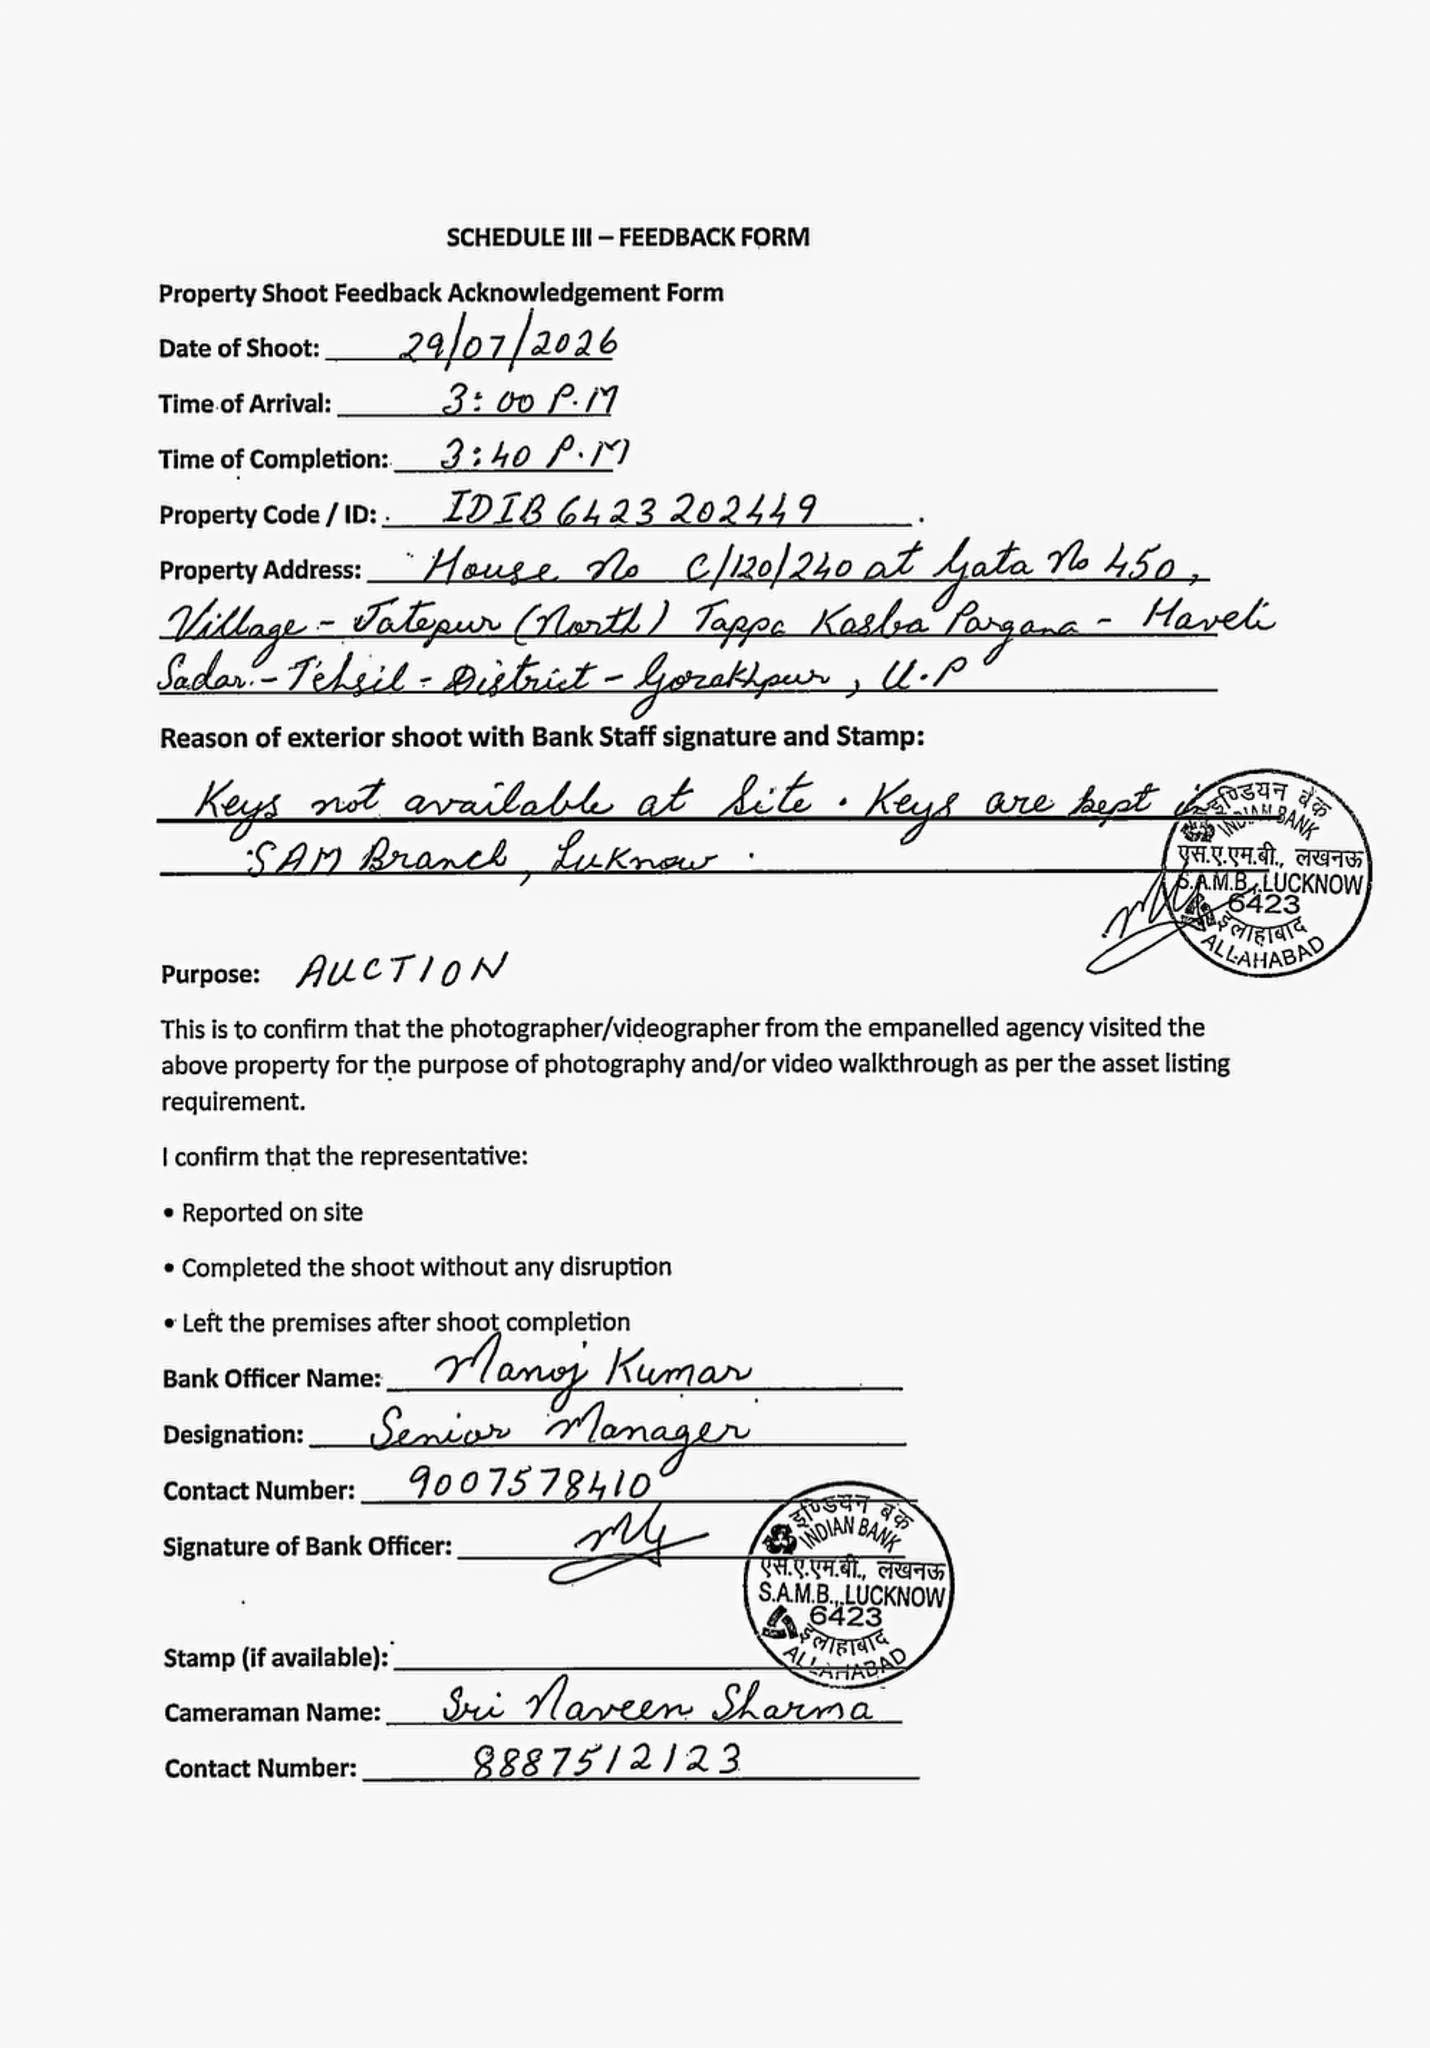 SCHEDULE III – FEEDBACK FORM
Property Shoot Feedback Acknowledgement Form
Date of Shoot: 29/07/2026
Time of Arrival: 3:00 P.M
Time of Completion: 3:40 P.M
Property Code / ID: IDIB6423202449
Property Address: House No C/120/240 at Gata No 450,
Village - Jatepur (North) Tappa Kasba Pargana - Haveli
Sadar - Tehsil - District - Gorakhpur, U.P
Reason of exterior shoot with Bank Staff signature and Stamp:
Keys not available at Site. Keys are kept
SAM Branch, Luknow.
इण्डियन बैंक
INDIAN BANK
एस.ए.एम.बी., लखनऊ
S.A.M.B., LUCKNOW
6423
इलाहाबाद
ALLAHABAD
Purpose: AUCTION
This is to confirm that the photographer/videographer from the empanelled agency visited the
above property for the purpose of photography and/or video walkthrough as per the asset listing
requirement.
I confirm that the representative:
• Reported on site
• Completed the shoot without any disruption
• Left the premises after shoot completion
Bank Officer Name: Manoj Kumar
Designation: Senior Manager
Contact Number: 9007578410
Signature of Bank Officer:
इण्डियन बैंक
INDIAN BANK
एस.ए.एम.बी., लखनऊ
S.A.M.B., LUCKNOW
6423
इलाहाबाद
ALLAHABAD
Stamp (if available):
Cameraman Name: Sri Naveen Sharma
Contact Number: 8887512123